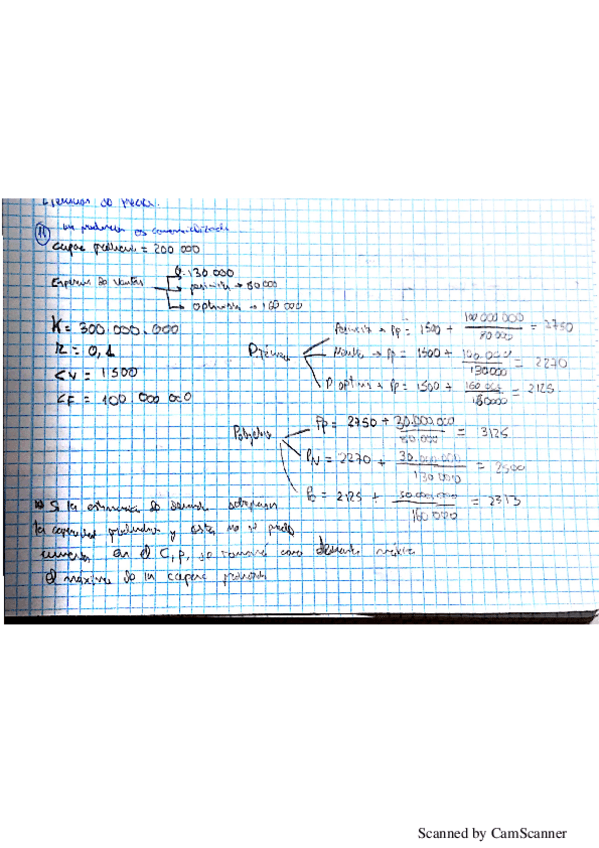 Ejercicios de precios.
11 Un productor
capac product = 200 000
Esperan de ventas
130.000
pesimista → 80 000
optimista → 160 000
K = 300.000.000
r = 0,1
CV = 1500
CF = 100.000 000
P técnico
Pesimista → Pp = 1500 + 100 000 000 / 80 000 = 2750
Normal → Pp = 1500 + 100.000 / 130000 = 2270
P optim → Pp = 1500 + = 2125
P objetivo
Pp = 2750 + 30.000 000 / 80.000 = 3125
PN = 2270 + 30.000.000 / 130 000 = 2500
Po = 2125 + 30 000 000 / 160 000 = 2313
Si la estimación de demanda sobrepasa
la capacidad productiva y esta no se puede
en el C,p, se tomará como demanda máxima
el máximo de la capac productiva
Scanned by CamScanner